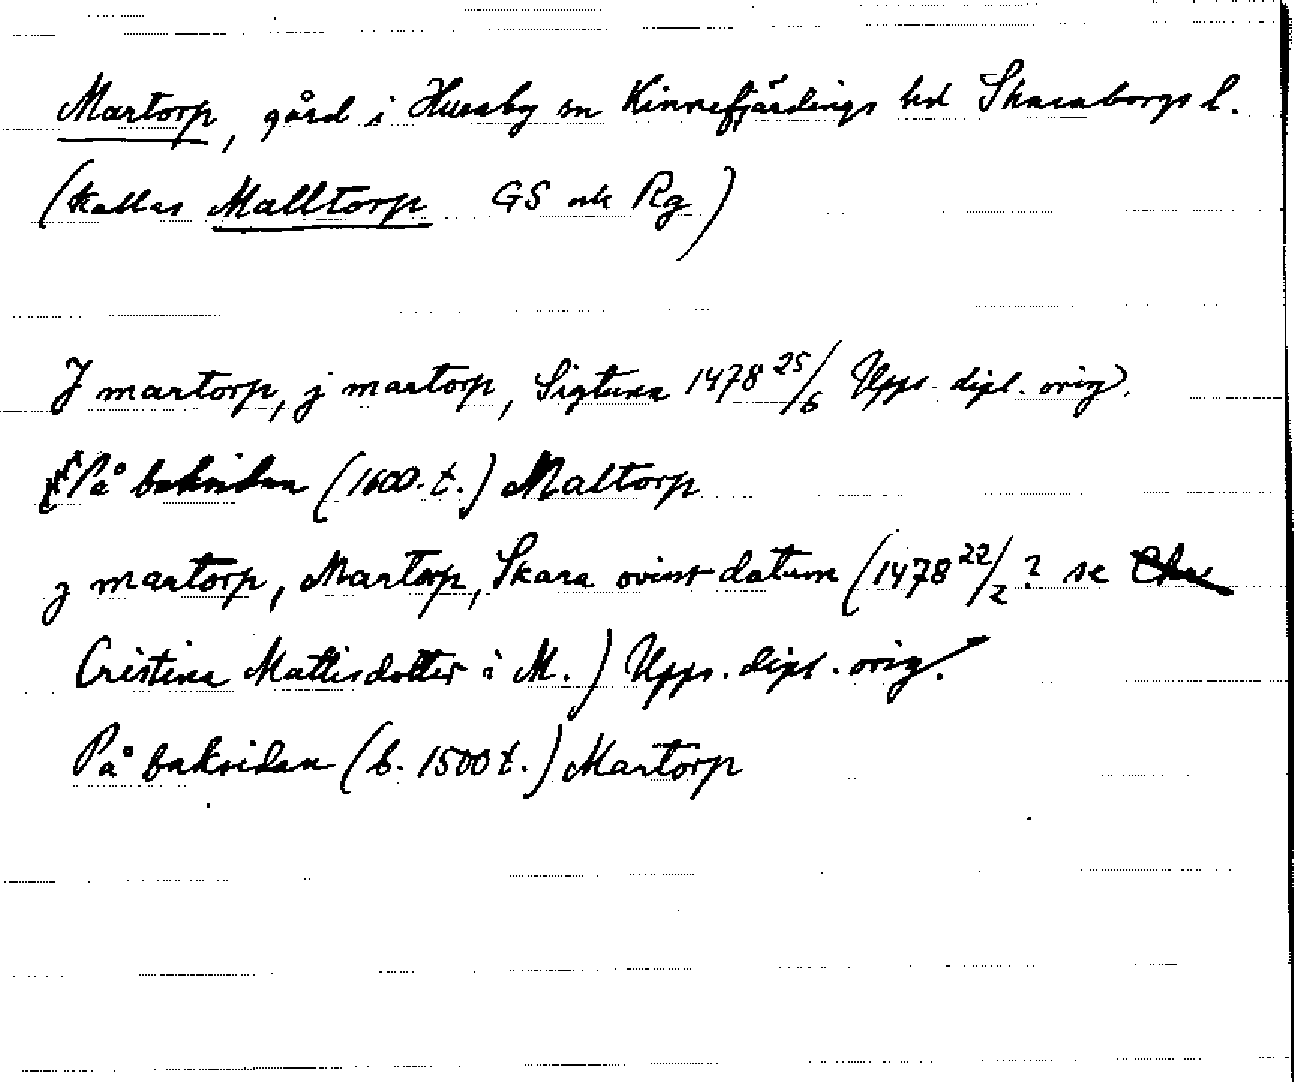 Martorp, gård i Husaby sn Kinnefjärdings hd Skaraborgs l.
(kallas Malltorp GS ock Rg)
J martorp, j martorp, Sigtuna 1478 25/6 Upps. dipl. orig.
På baksidan (1600.t.) Maltorp
j martorp, Martorp, Skara ovisst datum (1478 22/2? se
Cristina Mattisdotter i M.) Upps. dipl. orig.
På baksidan (b. 1500 t.) Martorp